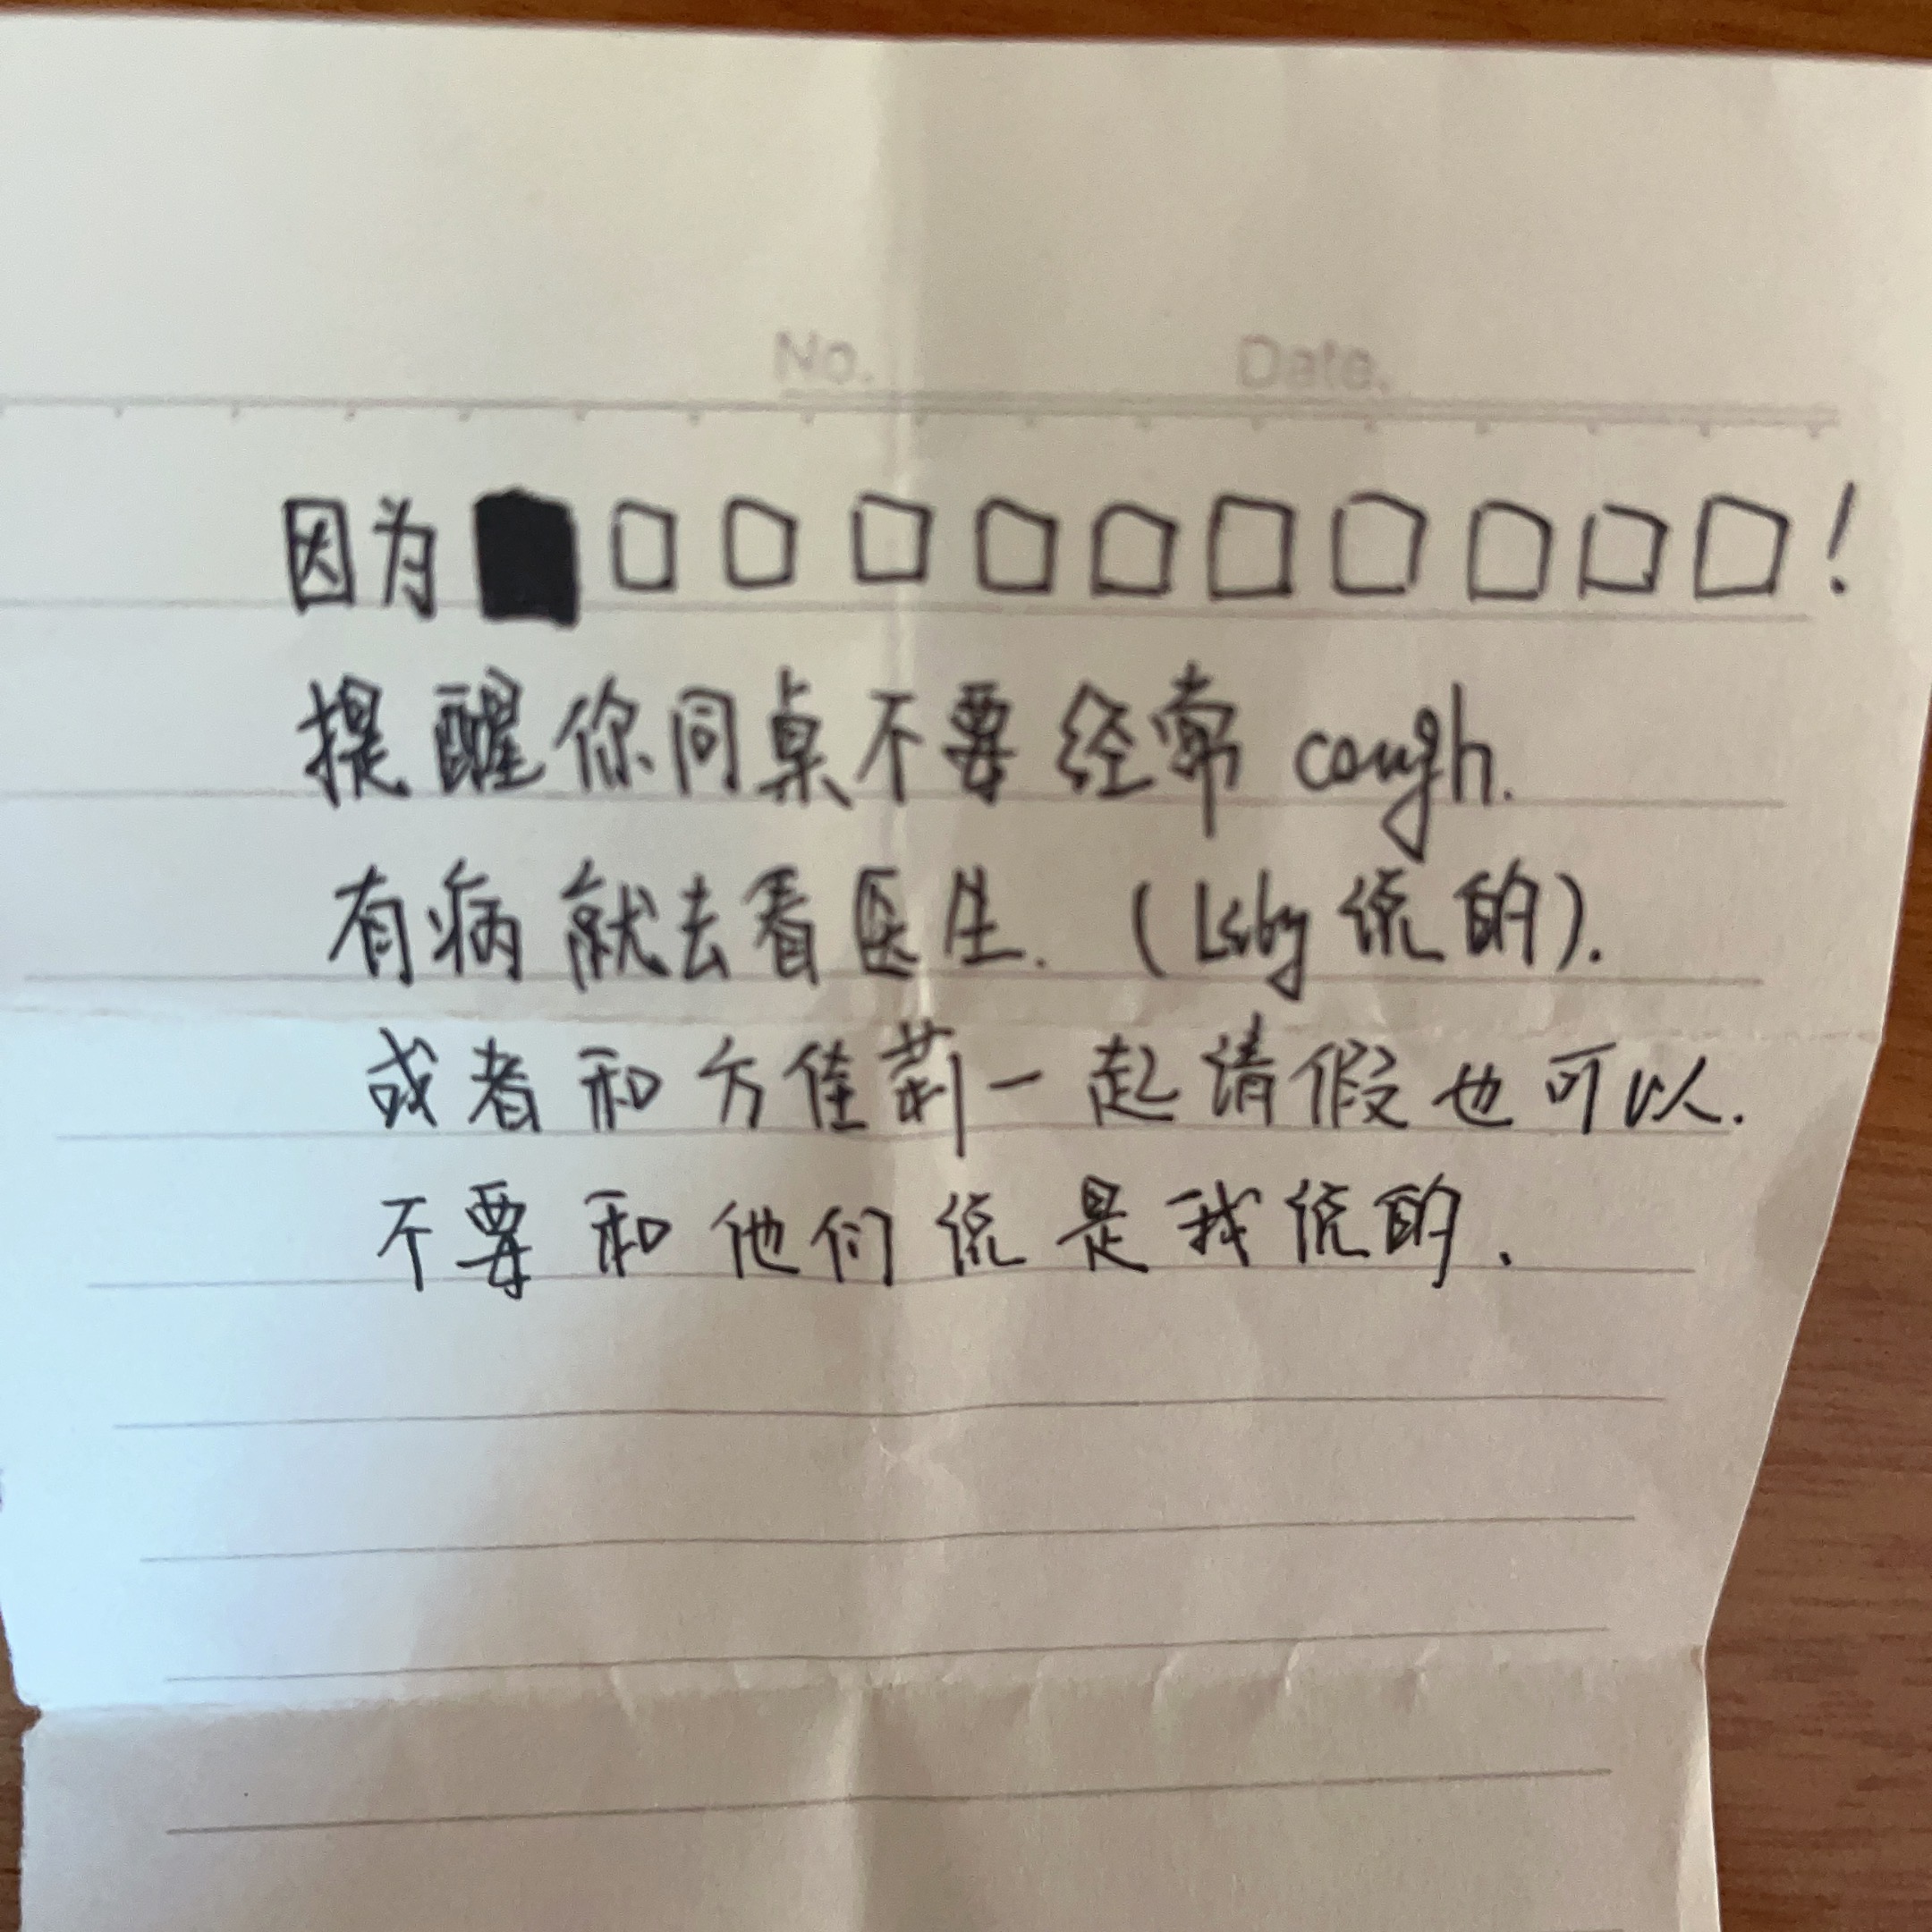 No. Date.
因为■□□□□□□□□□□!
提醒你同桌不要经常 cough.
有病就去看医生. (Lsby 说的).
或者和方佳莉一起请假也可以.
不要和他们说是我说的.